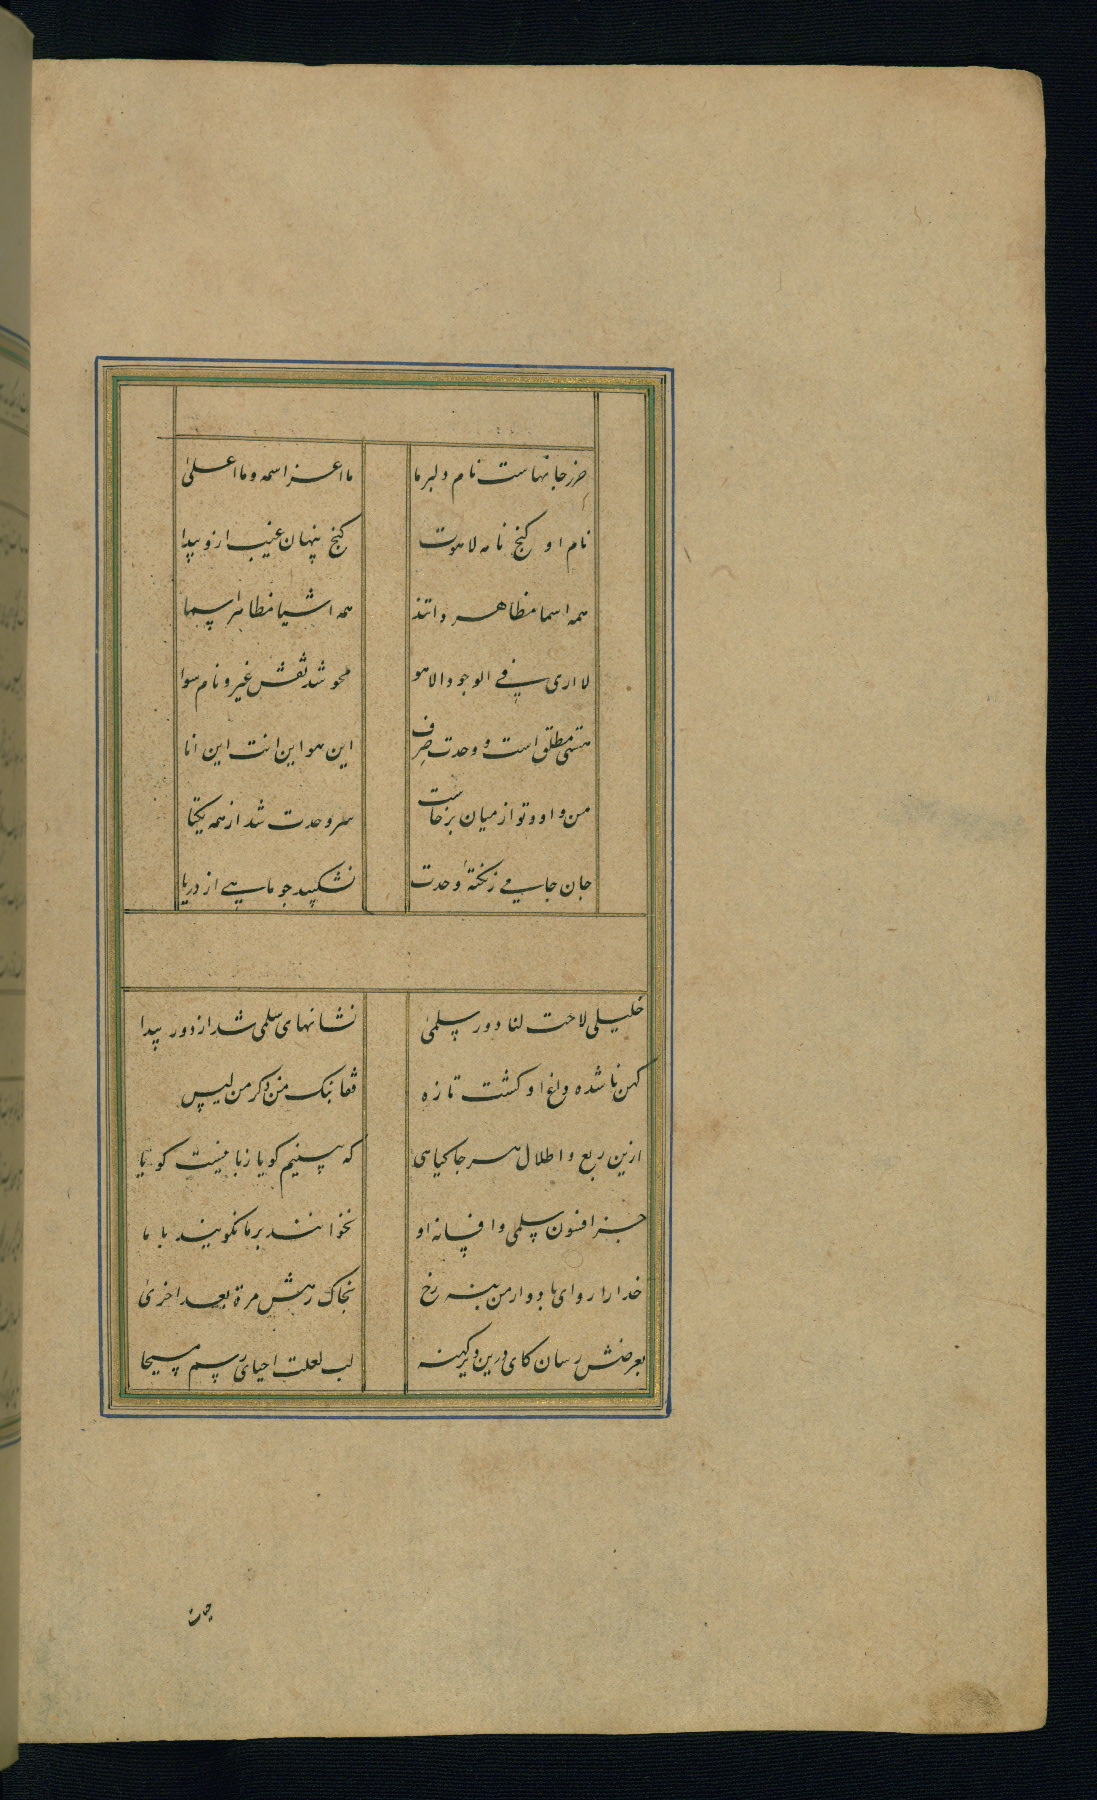 حرز جانهاست نام دلبر ما ما اعز اسمه و ما اعلی
نام او کنج نامه لاهوت کنج پنهان غیب ازو پیدا
همه اسما مظاهر ذاتند همه اشیا مظاهر اسما
لا اری فی الوجود الا هو محو شد نقش غیر و نام سوا
هستی مطلق است و وحدت صرف این هو این انت این انا
من و او و تو از میان برخاست سر وحدت شد از همه یکتا
جان جامی ز نکتهٔ وحدت نشکیبد چو ماهیی از دریا
خلیلی لاحت لنا دور سلمی نشانهای سلمی شد از دور پیدا
کهن ناشده داغ او کشت تازه قفا نبک من ذکر من لیس
ازین ربع و اطلال هر جا کیاهی که بینیم کویا زبانیست کویا
جز افسون سلمی و افسانه او نخوانند بر ما نکویند با ما
خدا را رو ای باد و از من بنه رخ بخاک رهش مرة بعد اخری
بعرضش رسان کای درین دیر کهنه لب لعلت احیای رسم مسیحا